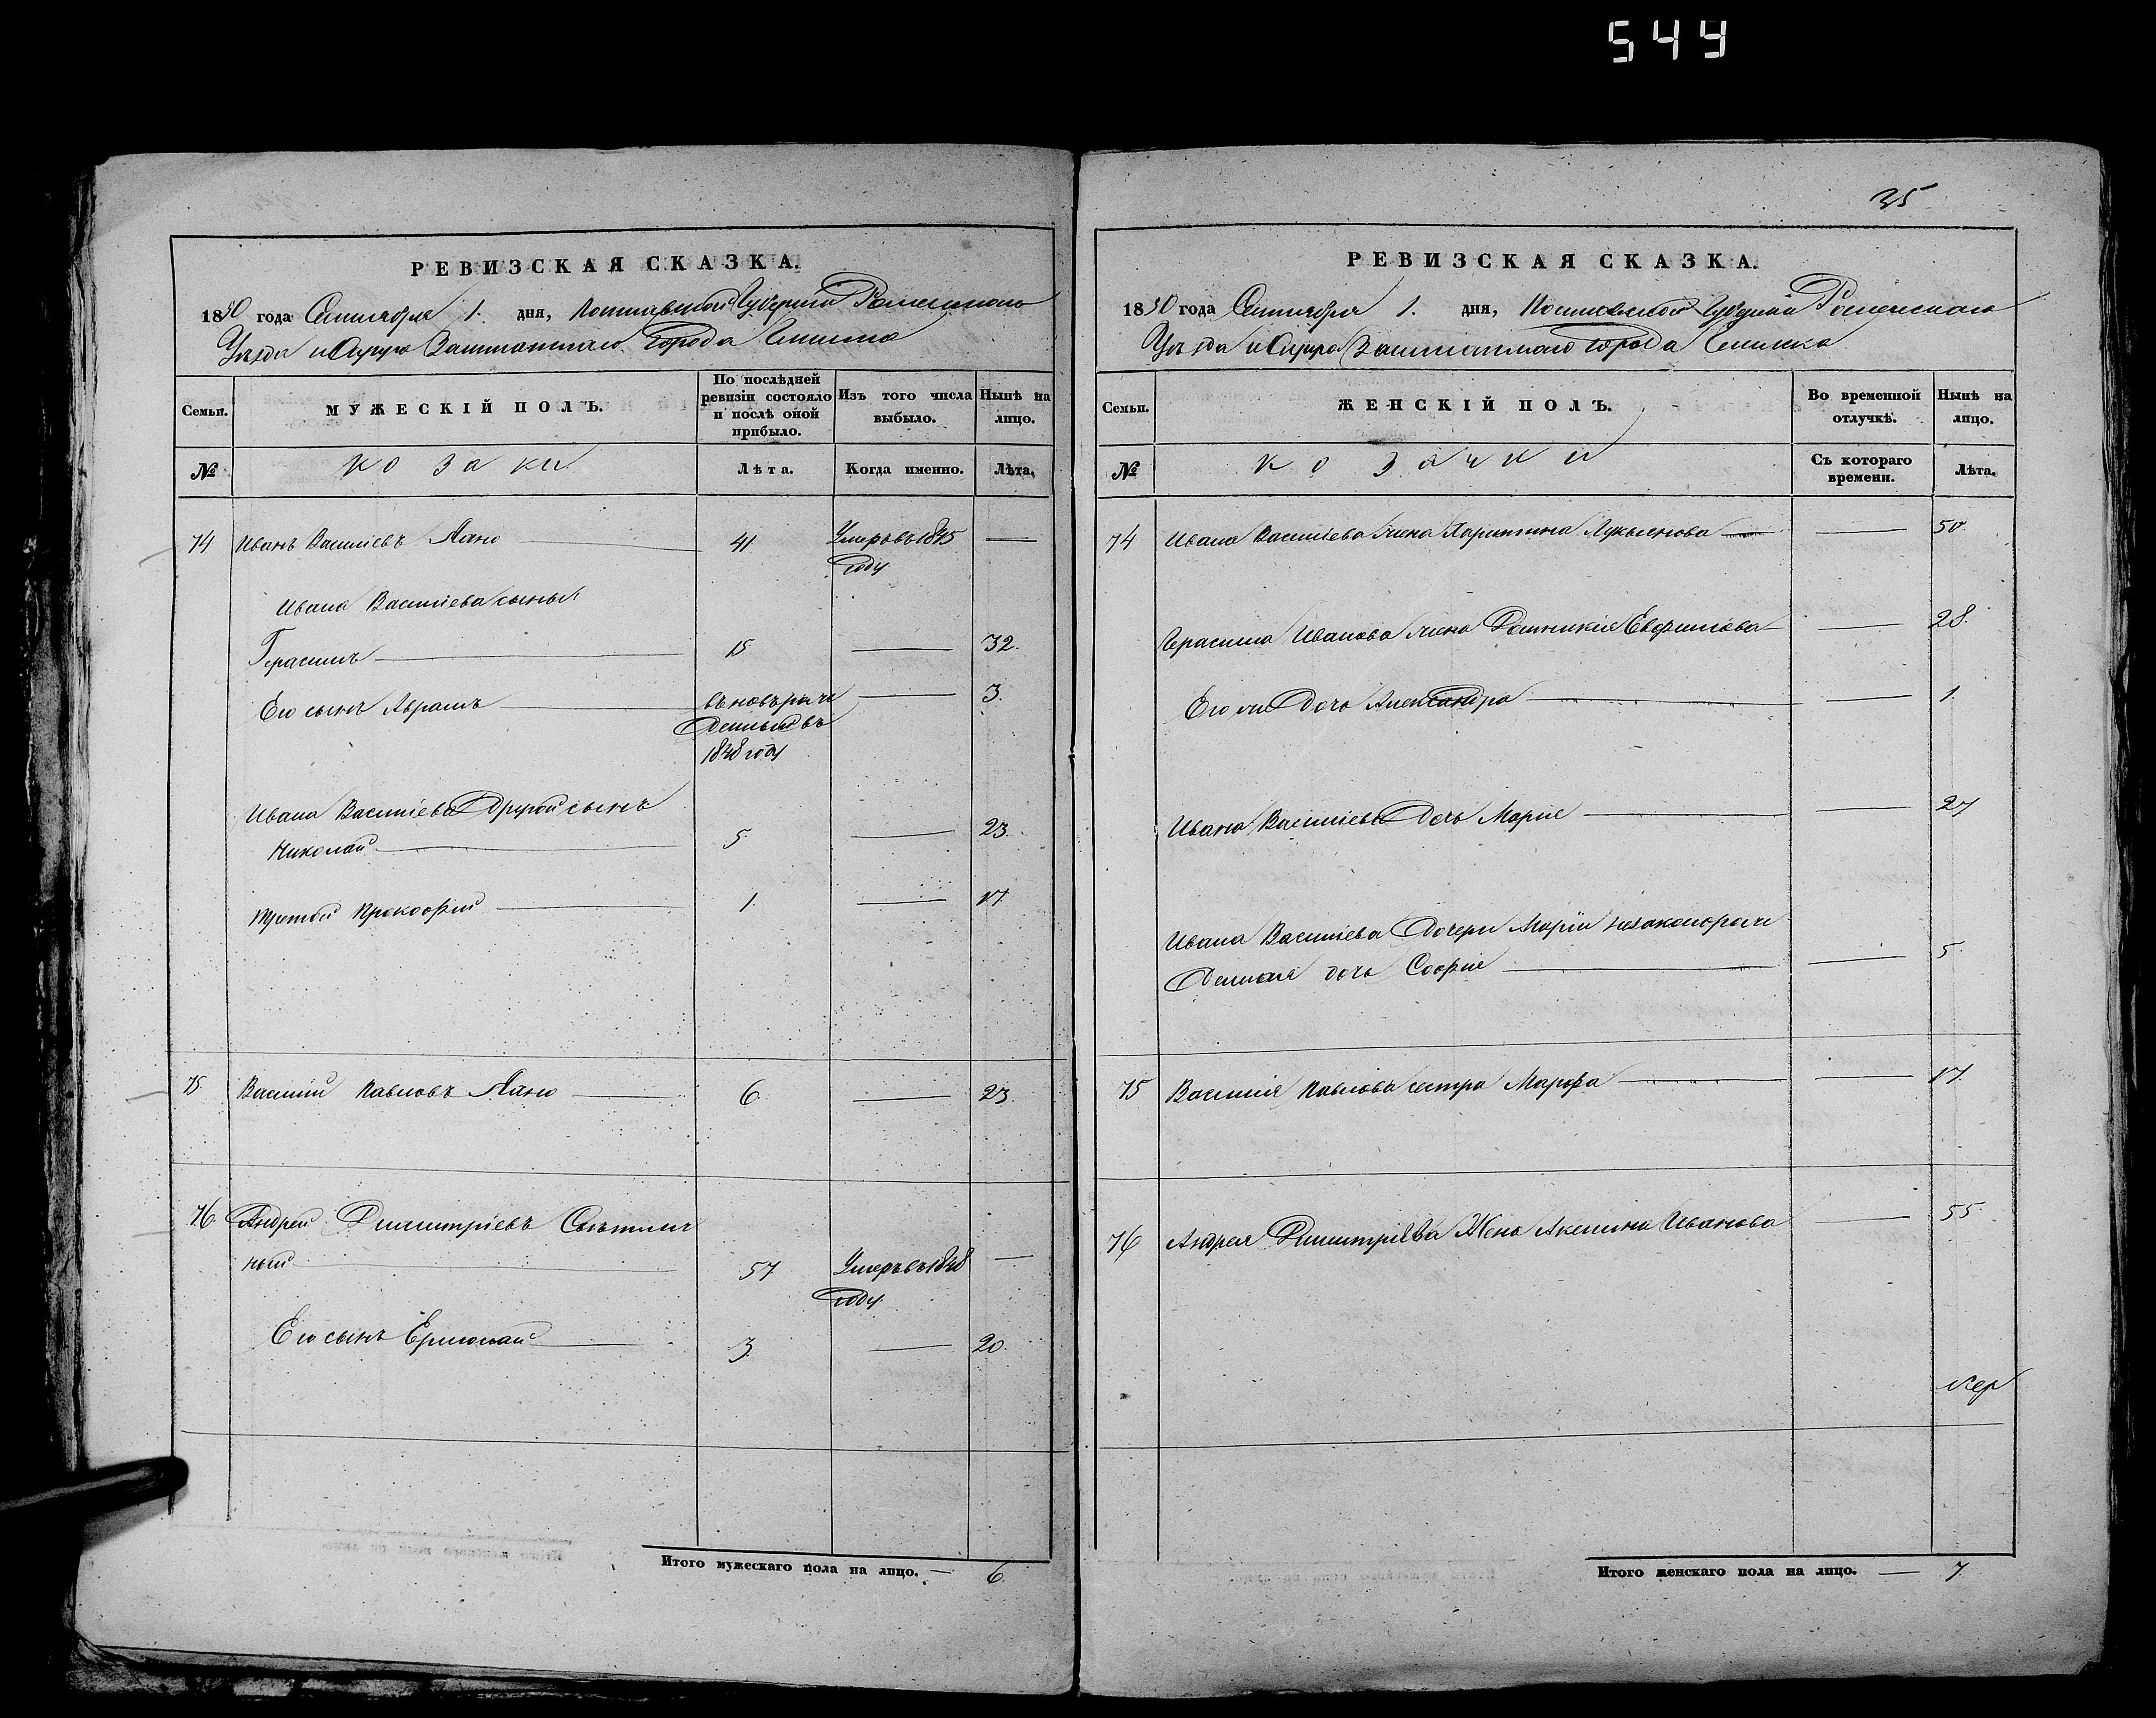 544
РЕВИЗСКАЯ СКАЗКА.
1850 года Сентября 1. дня, Полтавской Губерніи Роменскаго
Уѣзда и Округа Заштатнаго Города Глинска
Семьи. МУЖЕСКІЙ ПОЛЪ. По послѣдней ревизіи состояло и послѣ оной прибыло. Изъ того числа выбыло. Нынѣ на лицо.
№ козаки Лѣта. Когда именно. Лѣта.
74 Иванъ Василіевъ 41 Умеръ въ 1845 году —
Ивана Василіева сыны
Герасимъ 15 — 32.
Его сынъ Аврамъ въ 1848 году — 3.
Ивана Василіева Другой сынъ
Николай 5 — 23.
Третій Прокофій 1. — 17.
75 Василій Павловъ 6 — 23.
76 Андрей Димитріевъ
ный 57 Умеръ въ 1848 году —
Его сынъ Ермолай 3. — 20.
Итого мужескаго пола на лицо. — 6.
35
РЕВИЗСКАЯ СКАЗКА.
1850 года Сентября 1. дня, Полтавской Губерніи Роменскаго
Уѣзда и Округа Заштатнаго города Глинска
Семьи. ЖЕНСКІЙ ПОЛЪ. Во временной отлучкѣ. Нынѣ на лицо.
№ козачки Съ котораго времени. Лѣта.
74 Ивана Василіева жена Харитина Лукьянова — 50.
Герасима Иванова жена Домникія Евфимова — 28.
Его же Дочь Александра — 1.
Ивана Василіева Дочь Марія — 27
Ивана Василіева Дочери Маріи незаконорож
денная дочь Софія — 5
75 Василія Павлова сестра Марфа — 17.
76 Андрея Димитріева Жена Акелина Иванова — 55.
Итого женскаго пола на лицо. — 7